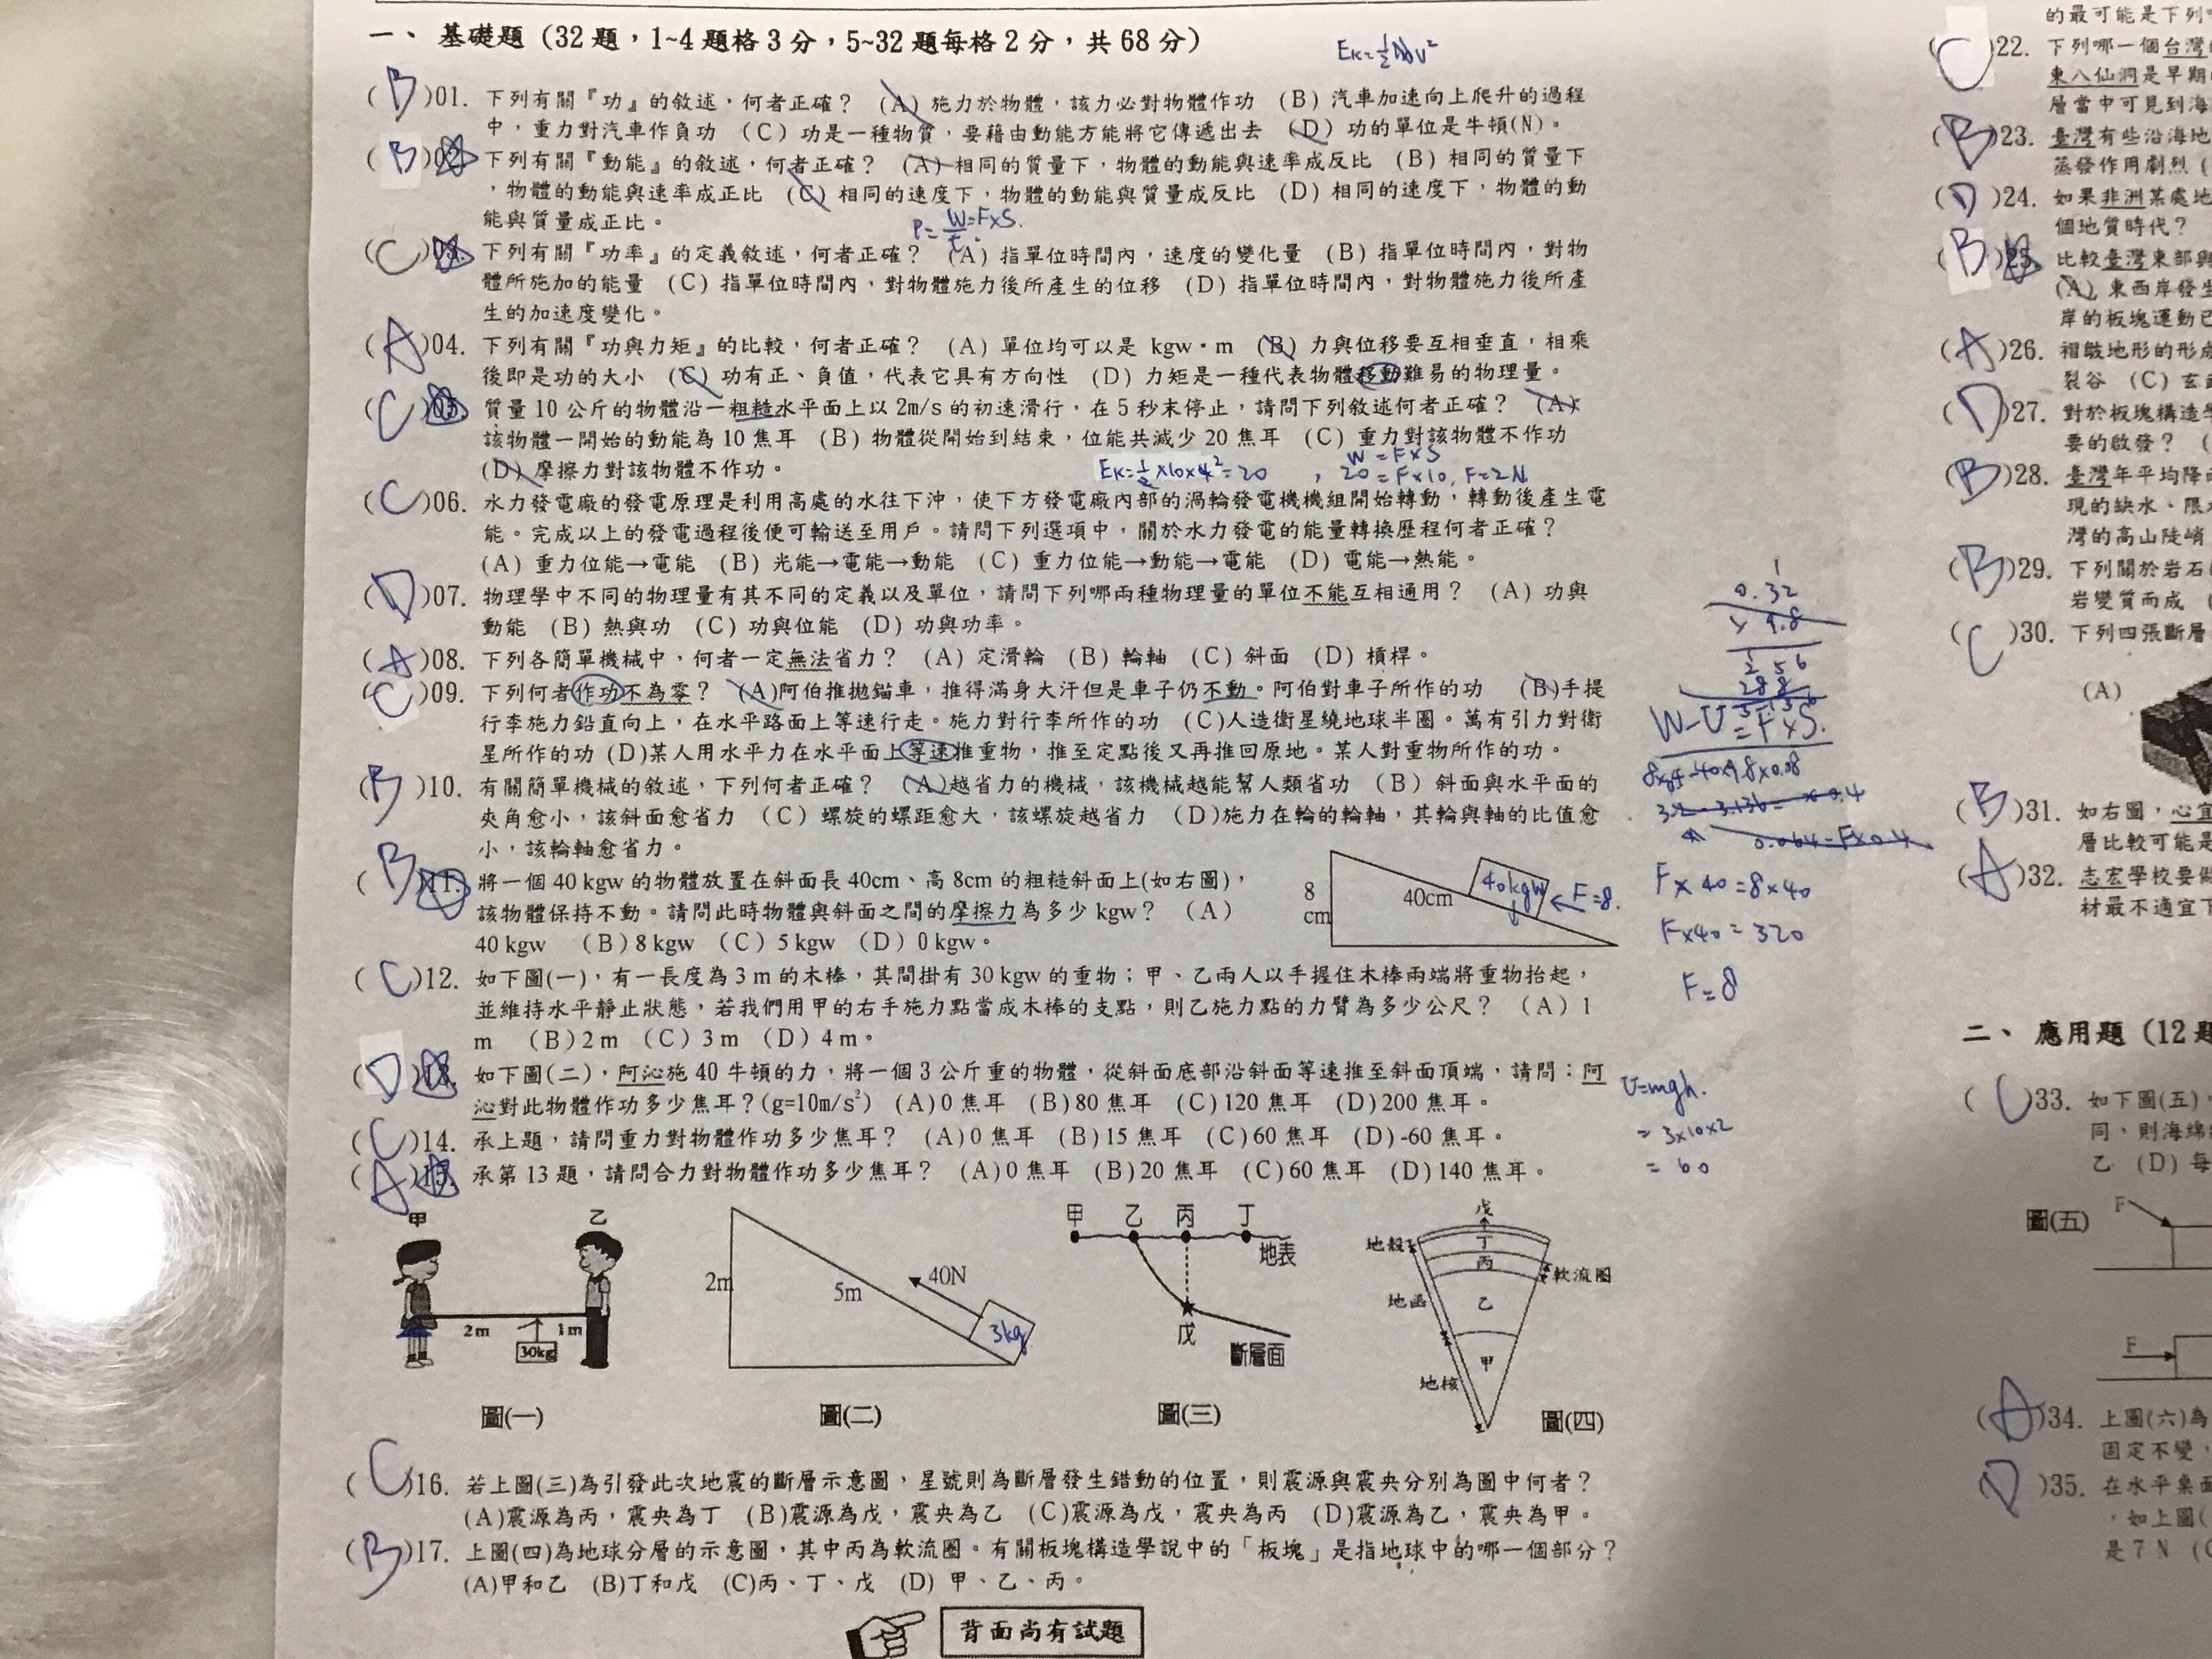 一、 基礎題（32題，1~4題格3分，5~32題每格2分，共68分）
Ek=½mv²
(B)01. 下列有關『功』的敘述，何者正確？ (A) 施力於物體，該力必對物體作功 (B) 汽車加速向上爬升的過程
中，重力對汽車作負功 (C) 功是一種物質，要藉由動能方能將它傳遞出去 (D) 功的單位是牛頓(N)。
(B)02. 下列有關『動能』的敘述，何者正確？ (A) 相同的質量下，物體的動能與速率成反比 (B) 相同的質量下
，物體的動能與速率成正比 (C) 相同的速度下，物體的動能與質量成反比 (D) 相同的速度下，物體的動
能與質量成正比。
P=W/t W=F×S
(C)03. 下列有關『功率』的定義敘述，何者正確？ (A) 指單位時間內，速度的變化量 (B) 指單位時間內，對物
體所施加的能量 (C) 指單位時間內，對物體施力後所產生的位移 (D) 指單位時間內，對物體施力後所產
生的加速度變化。
(A)04. 下列有關『功與力矩』的比較，何者正確？ (A) 單位均可以是 kgw·m (B) 力與位移要互相垂直，相乘
後即是功的大小 (C) 功有正、負值，代表它具有方向性 (D) 力矩是一種代表物體移動難易的物理量。
(C)05. 質量10公斤的物體沿一粗糙水平面上以2m/s的初速滑行，在5秒末停止，請問下列敘述何者正確？ (A)
該物體一開始的動能為10焦耳 (B) 物體從開始到結束，位能共減少20焦耳 (C) 重力對該物體不作功
(D) 摩擦力對該物體不作功。
Ek=½×10×4²=20 ，
W=F×S
20=F×10, F=2N
(C)06. 水力發電廠的發電原理是利用高處的水往下沖，使下方發電廠內部的渦輪發電機機組開始轉動，轉動後產生電
能。完成以上的發電過程後便可輸送至用戶。請問下列選項中，關於水力發電的能量轉換歷程何者正確？
(A) 重力位能→電能 (B) 光能→電能→動能 (C) 重力位能→動能→電能 (D) 電能→熱能。
(D)07. 物理學中不同的物理量有其不同的定義以及單位，請問下列哪兩種物理量的單位不能互相通用？ (A) 功與
動能 (B) 熱與功 (C) 功與位能 (D) 功與功率。
(A)08. 下列各簡單機械中，何者一定無法省力？ (A) 定滑輪 (B) 輪軸 (C) 斜面 (D) 槓桿。
(C)09. 下列何者作功不為零？ (A)阿伯推拋錨車，推得滿身大汗但是車子仍不動。阿伯對車子所作的功 (B)手提
行李施力鉛直向上，在水平路面上等速行走。施力對行李所作的功 (C)人造衛星繞地球半圈。萬有引力對衛
星所作的功 (D)某人用水平力在水平面上等速推重物，推至定點後又再推回原地。某人對重物所作的功。
(B)10. 有關簡單機械的敘述，下列何者正確？ (A)越省力的機械，該機械越能幫人類省功 (B) 斜面與水平面的
夾角愈小，該斜面愈省力 (C) 螺旋的螺距愈大，該螺旋越省力 (D)施力在輪的輪軸，其輪與軸的比值愈
小，該輪軸愈省力。
(B)11. 將一個40 kgw的物體放置在斜面長40cm、高8cm的粗糙斜面上(如右圖)，
該物體保持不動。請問此時物體與斜面之間的摩擦力為多少kgw？ (A)
40 kgw (B)8 kgw (C) 5 kgw (D) 0 kgw。
8
cm
40cm
40kgw
F=8.
0.32
× 9.8
256
W-U=F×S.
F×40=8×40
F×40=320
F=8
(C)12. 如下圖(一)，有一長度為3 m的木棒，其間掛有30 kgw的重物；甲、乙兩人以手握住木棒兩端將重物抬起，
並維持水平靜止狀態，若我們用甲的右手施力點當成木棒的支點，則乙施力點的力臂為多少公尺？ (A) 1
m (B) 2 m (C) 3 m (D) 4 m。
(D)13. 如下圖(二)，阿沁施40牛頓的力，將一個3公斤重的物體，從斜面底部沿斜面等速推至斜面頂端，請問：阿
沁對此物體作功多少焦耳？(g=10m/s²) (A)0焦耳 (B)80焦耳 (C)120焦耳 (D)200焦耳。
(C)14. 承上題，請問重力對物體作功多少焦耳？ (A)0焦耳 (B)15焦耳 (C)60焦耳 (D)-60焦耳。
(A)15. 承第13題，請問合力對物體作功多少焦耳？ (A)0焦耳 (B)20焦耳 (C)60焦耳 (D)140焦耳。
U=mgh.
=3×10×2
=60
甲
乙
2m
1m
30kg
圖(一)
2m
5m
40N
3kg
圖(二)
甲 乙 丙 丁
地表
戊
斷層面
圖(三)
戊
地殼
丁
丙
軟流圈
地函
乙
甲
地核
圖(四)
(C)16. 若上圖(三)為引發此次地震的斷層示意圖，星號則為斷層發生錯動的位置，則震源與震央分別為圖中何者？
(A)震源為丙，震央為丁 (B)震源為戊，震央為乙 (C)震源為戊，震央為丙 (D)震源為乙，震央為甲。
(B)17. 上圖(四)為地球分層的示意圖，其中丙為軟流圈。有關板塊構造學說中的「板塊」是指地球中的哪一個部分？
(A)甲和乙 (B)丁和戊 (C)丙、丁、戊 (D) 甲、乙、丙。
背面尚有試題
的最可能是下列
(C)22. 下列哪一個台灣
東八仙洞是早期
層當中可見到海
(B)23. 臺灣有些沿海地
蒸發作用劇烈 (
(D)24. 如果非洲某處地
個地質時代？
(B)25. 比較臺灣東部與
(A) 東西岸發生
岸的板塊運動已
(A)26. 褶皺地形的形成
裂谷 (C) 玄武
(D)27. 對於板塊構造學
要的啟發？ (
(B)28. 臺灣年平均降雨
現的缺水、限水
灣的高山陡峭
(B)29. 下列關於岩石
岩變質而成 (
(C)30. 下列四張斷層
(A)
(B)31. 如右圖，心宜
層比較可能是
(A)32. 志宏學校要做
材最不適宜下
二、 應用題（12題
(C)33. 如下圖(五)，
同，則海綿
乙 (D) 每
圖(五)
F
F
(A)34. 上圖(六)為
固定不變，
(D)35. 在水平桌面
，如上圖(
是7 N (C